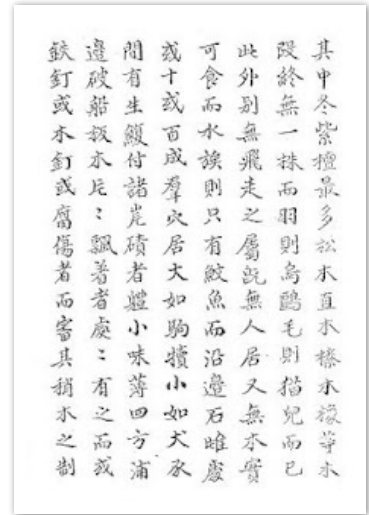 其中冬紫檀最多松木直木榛木橡等木
段終無一株而羽則烏鷗毛則猫兒而已
此外別無飛走之屬旣無人居又無木實
可食而水族則只有鮫魚而沿邊石堆處
或十或百成羣穴居大如駒犢小如犬豕
間有生鰒付諸崖磧者體小味薄四方浦
邊破船板木片〻飄着者處〻有之而或
鉄釘或木釘或腐傷者而審其稍木之制